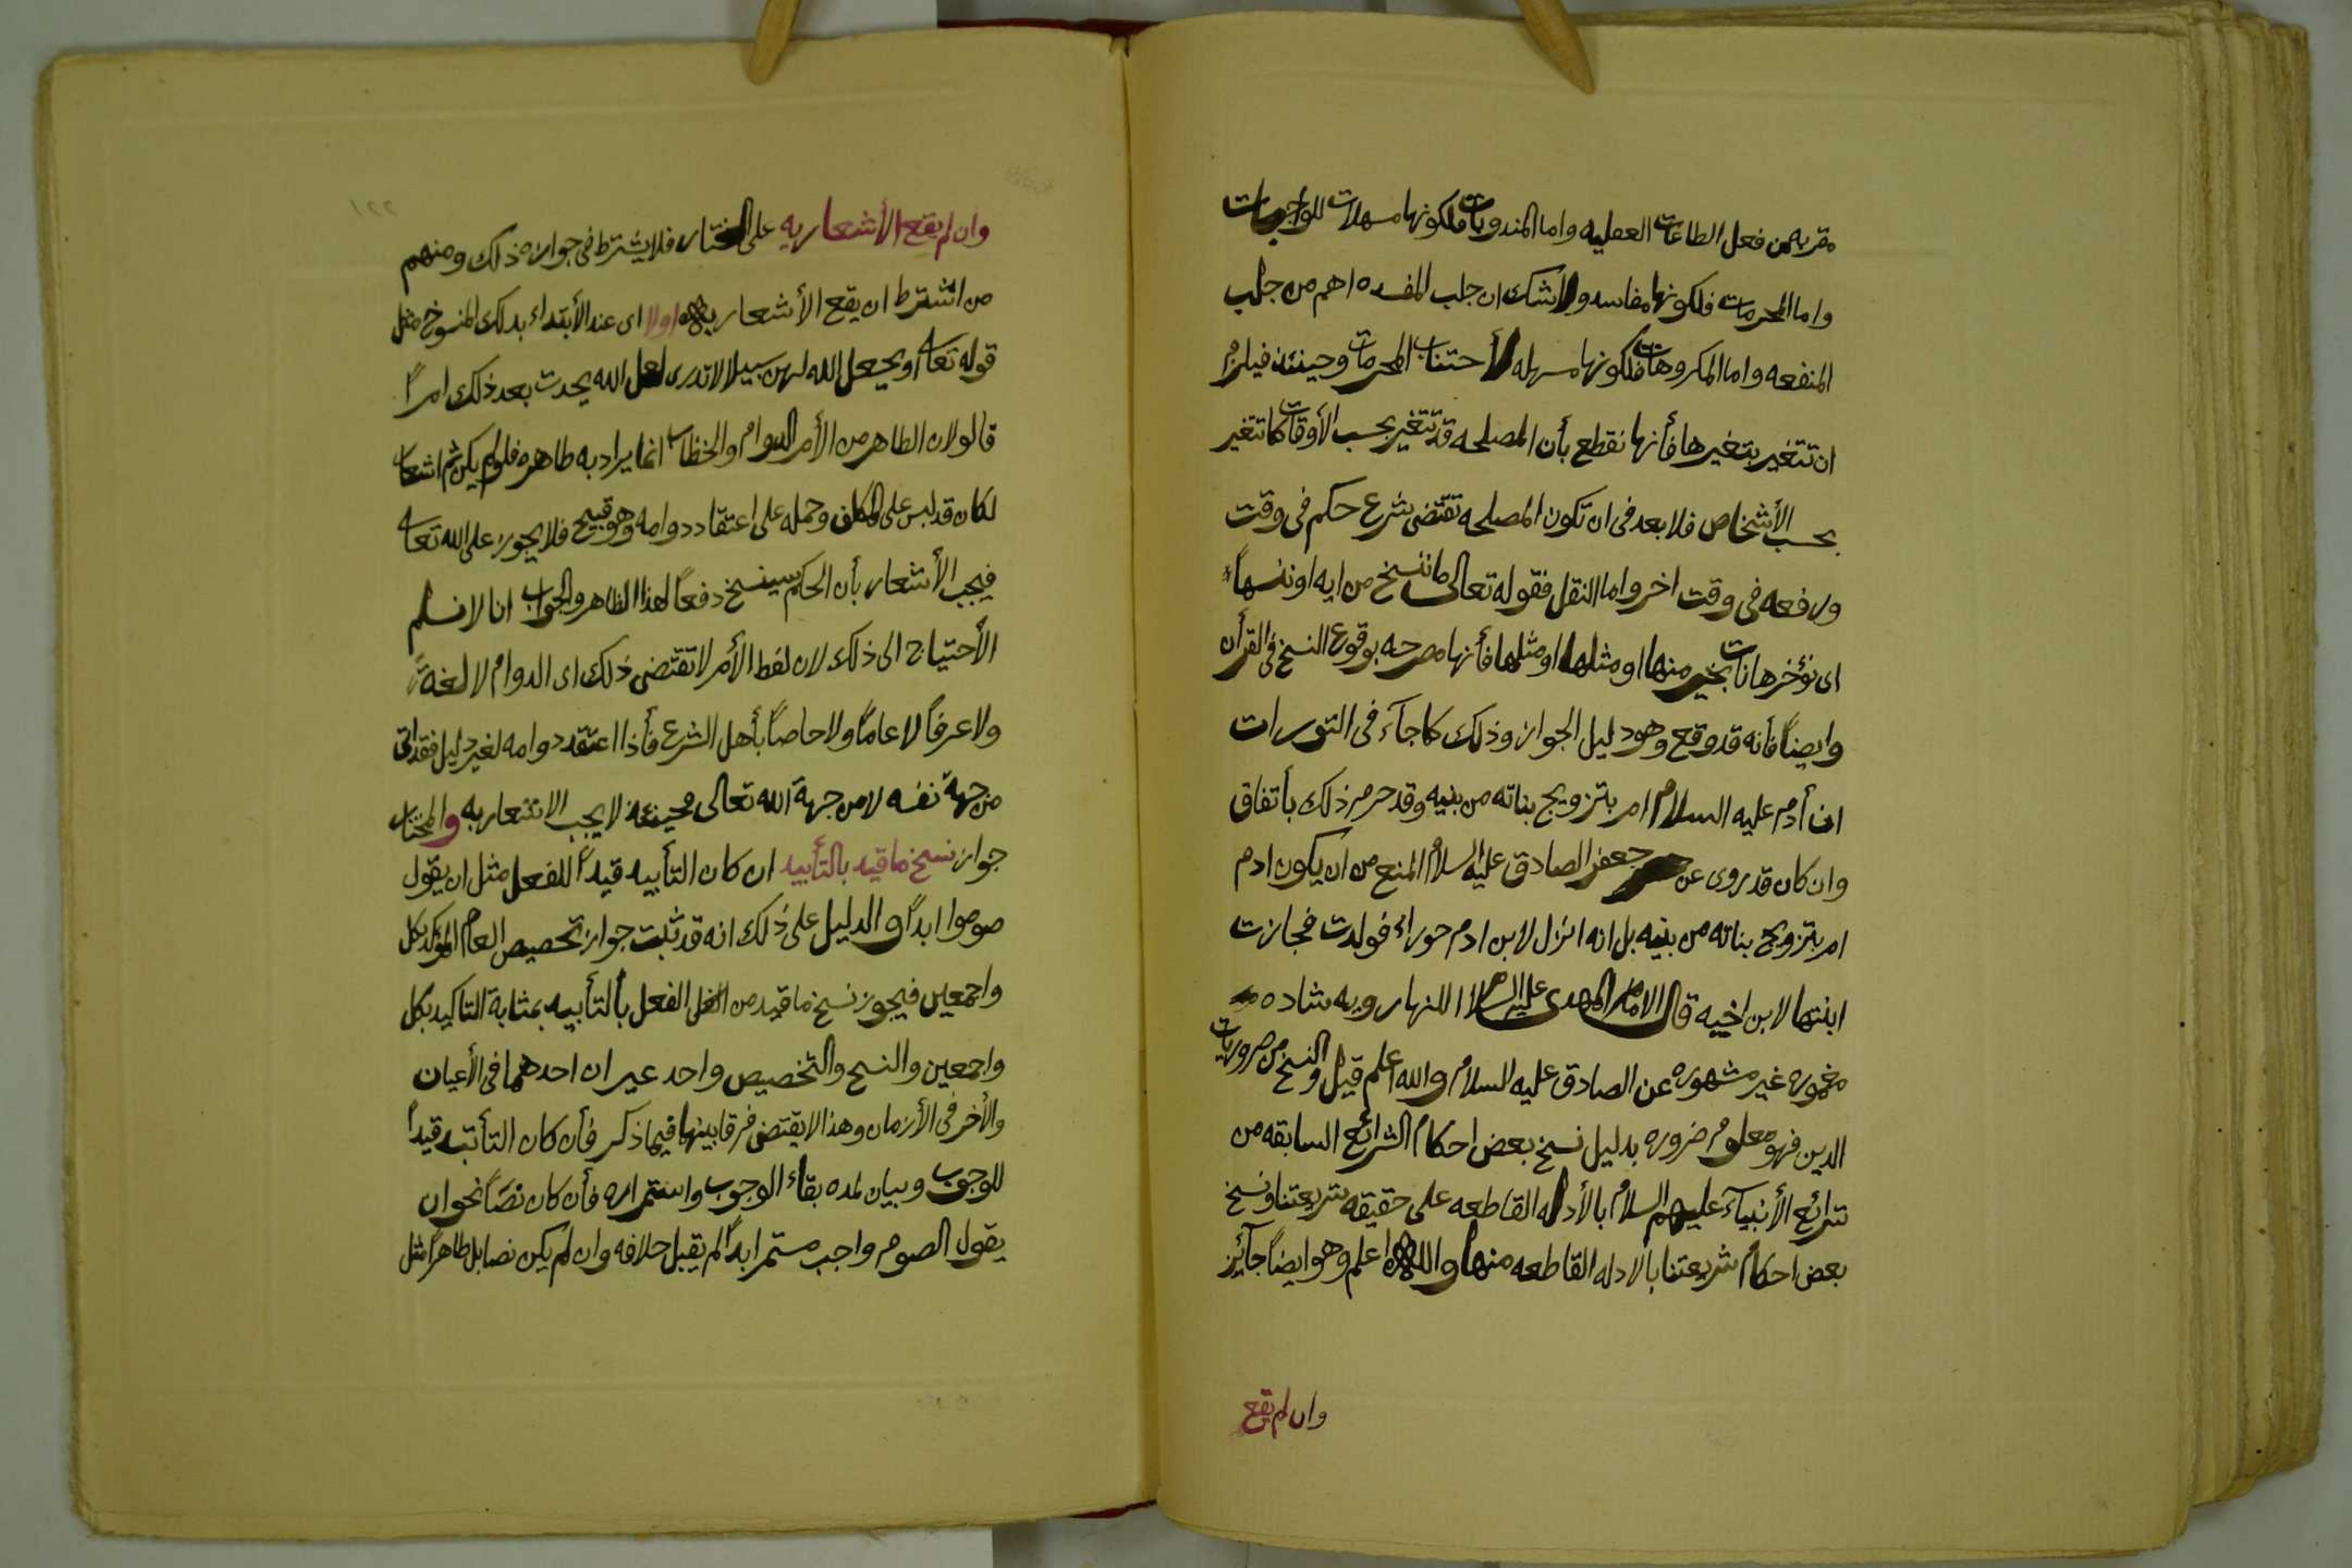 مقربه من فعل الطاعات العقليه واما المندوبات فلكونها مسهلات للواجبات
واما المحرمات فلكونها مفاسد ولاشك ان جلب المفسده اهم من جلب
المنفعه واما المكروهات فلكونها مسهله لأجتناب المحرمات وحينئذ فيلزم
ان تتغير بتغيرها فأنها نقطع بأن المصلحه قد تتغير بحسب الأوقات كما تتغير
بحسب الأشخاص فلا بعد فى ان تكون المصلحه تقتضى شرع حكم فى وقت
ورفعه فى وقت اخر واما النقل فقوله تعالى ما ننسخ من ايه او ننسها
اى نؤخرها نات بخير منها او مثلها او مثلها فأنها مصرحه بوقوع النسخ فى القرأن
وايضاً فأنه قد وقع وهو دليل الجواز وذلك كما جآء فى التورات
ان أدم عليه السلام امر بتزويج بناته من بنيه وقد حرم ذلك بأتفاق
وان كان قد روى عن جعفر الصادق عليه السلام المنع من ان يكون ادم
امر بتزويج بناته من بنيه بل انه انزل لابن ادم حوراء فولدت فجازت
ابنتها لابن اخيه قال الامام المهدى عليه السلام الا انها روايه شاده
مغموره غير مشهوره عن الصادق عليه السلام والله اعلم قيل والنسخ من ضروريات
الدين فهو معلوم ضروره بدليل نسخ بعض احكام الشرائع السابقه من
شرائع الأنبيآء عليهم السلام بالأدله القاطعه على حقيقه شريعتنا ونسخ
بعض احكام شريعتنا بالادله القاطعه منها والله اعلم وهو ايضاً جآئز
وان لم يقع
١٢٢
وان لم يقع الأشعار به على المختار فلا يشترط فى جوازه ذلك ومنهم
من اشترط ان يقع الأشعار به اولا اى عند الأبتداء بذلك المنسوخ مثل
قوله تعالى او يجعل الله لهن سبيلا لا تدرى لعل الله يحدث بعد ذلك امراً
قالو لان الظاهر من الأمر الدوام والخطاب انما يراد به ظاهره فلو لم يكن ثم اشعار
لكان قد لبس على المكلف وحمله على اعتقاد دوامه وهو قبيح فلا يجوز على الله تعالى
فيجب الأشعار بأن الحكم سينسخ دفعاً لهذا الظاهر والجواب انا لا نسلم
الأحتياج الى ذلك لان لفظ الأمر لا تقتضى ذلك اى الدوام لا لغةً
ولا عرفاً لا عاماً ولا خاصاً بأهل الشرع فأذا اعتقد دوامه لغير دليل فقد اتى
من جهة نفسه لا من جهة الله تعالى فحينئذ لا يجب الاشعار به والمختار
جواز نسخ ما قيد بالتأبيد ان كان التأبيد قيداً للفعل مثل ان يقول
صوموا ابداً والدليل على ذلك انه قد ثبت جواز تخصيص العام المؤكد بكل
واجمعين فيجوز نسخ ما قيد من الفعل بالتأبيد بمثابة التاكيد بكل
واجمعين والنسخ والتخصيص واحد غير ان احدهما فى الأعيان
والأخر فى الأزمان وهذا لا يقتضى فرقا بينهما فيما ذكر فأن كان التأبيد قيداً
للوجوب وبيان لمده بقاء الوجوب واستمراره فأن كان نصاً نحو ان
يقول الصوم واجب مستمر ابداً لم يقبل خلافه وان لم يكن نصا بل ظاهراً مثل